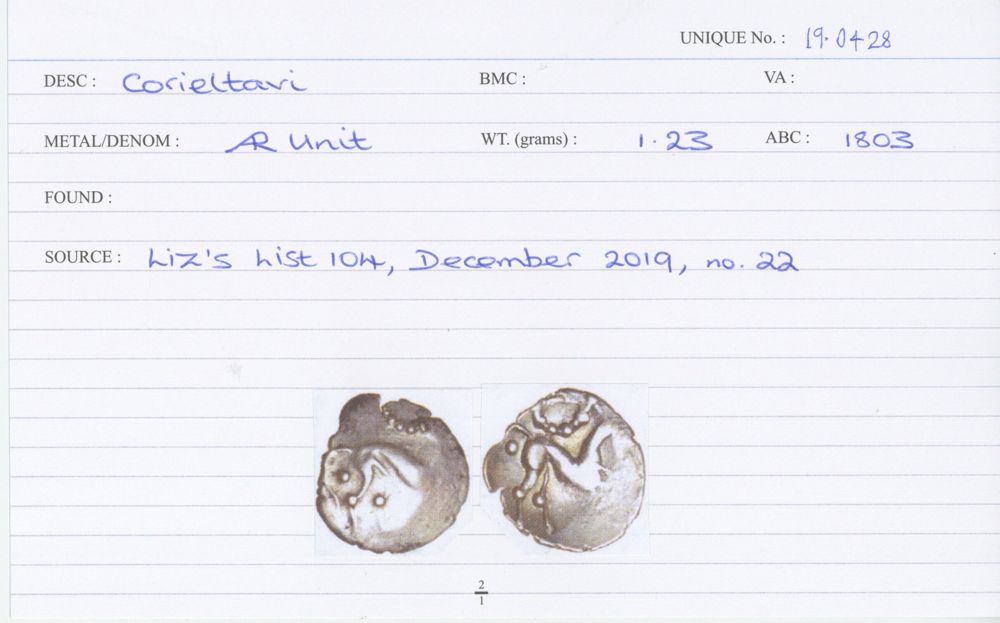 UNIQUE No. : 19.0428
DESC : Corieltavi BMC : VA :
METAL/DENOM : AR Unit WT. (grams) : 1.23 ABC : 1803
FOUND :
SOURCE : Liz's List 104, December 2019, no. 22
2
1